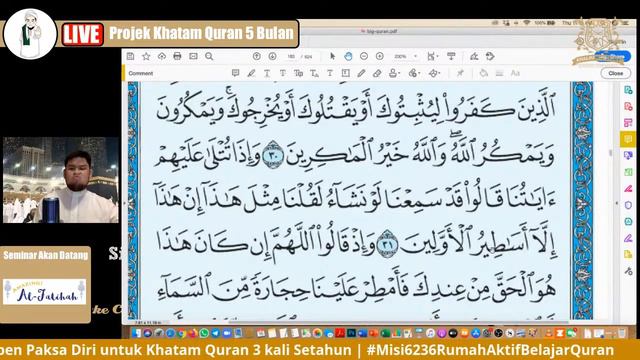 LIVE Projek Khatam Quran 5 Bulan
big-quran.pdf
183 / 624
200%
Comment
Close
الَّذِينَ كَفَرُوا لِيُثْبِتُوكَ أَوْ يَقْتُلُوكَ أَوْ يُخْرِجُوكَ ۚ وَيَمْكُرُونَ
وَيَمْكُرُ اللَّهُ ۖ وَاللَّهُ خَيْرُ الْمَاكِرِينَ ٣٠ وَإِذَا تُتْلَىٰ عَلَيْهِمْ
ءَايَاتُنَا قَالُوا قَدْ سَمِعْنَا لَوْ نَشَاءُ لَقُلْنَا مِثْلَ هَٰذَا إِنْ هَٰذَا
إِلَّا أَسَاطِيرُ الْأَوَّلِينَ ٣١ وَإِذْ قَالُوا اللَّهُمَّ إِن كَانَ هَٰذَا
هُوَ الْحَقَّ مِنْ عِندِكَ فَأَمْطِرْ عَلَيْنَا حِجَارَةً مِّنَ السَّمَاءِ
Seminar Akan Datang
AMAZING!
Al-Fatihah
pen Paksa Diri untuk Khatam Quran 3 kali Setahun | #Misi6236RumahAktifBelajarQuran